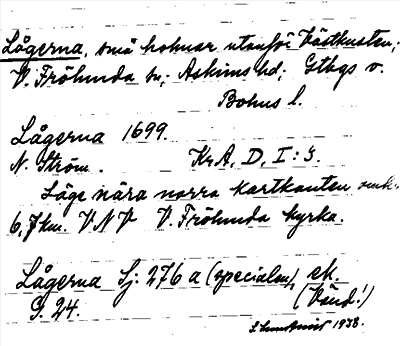 Lågerna, små holmar utanför Västkusten;
V. Frölunda sn; Askims hd; Gtbgs o.
Bohus l.
Lågerna 1699.
N. Ström. Kr.A, D, I: 3.
Läge nära norra kartkanten
6,7 km. V N V V. Frölunda kyrka.
Lågerna Sj: 276 a (specialen), ek.
G. 24. (Vänd!)
1938.